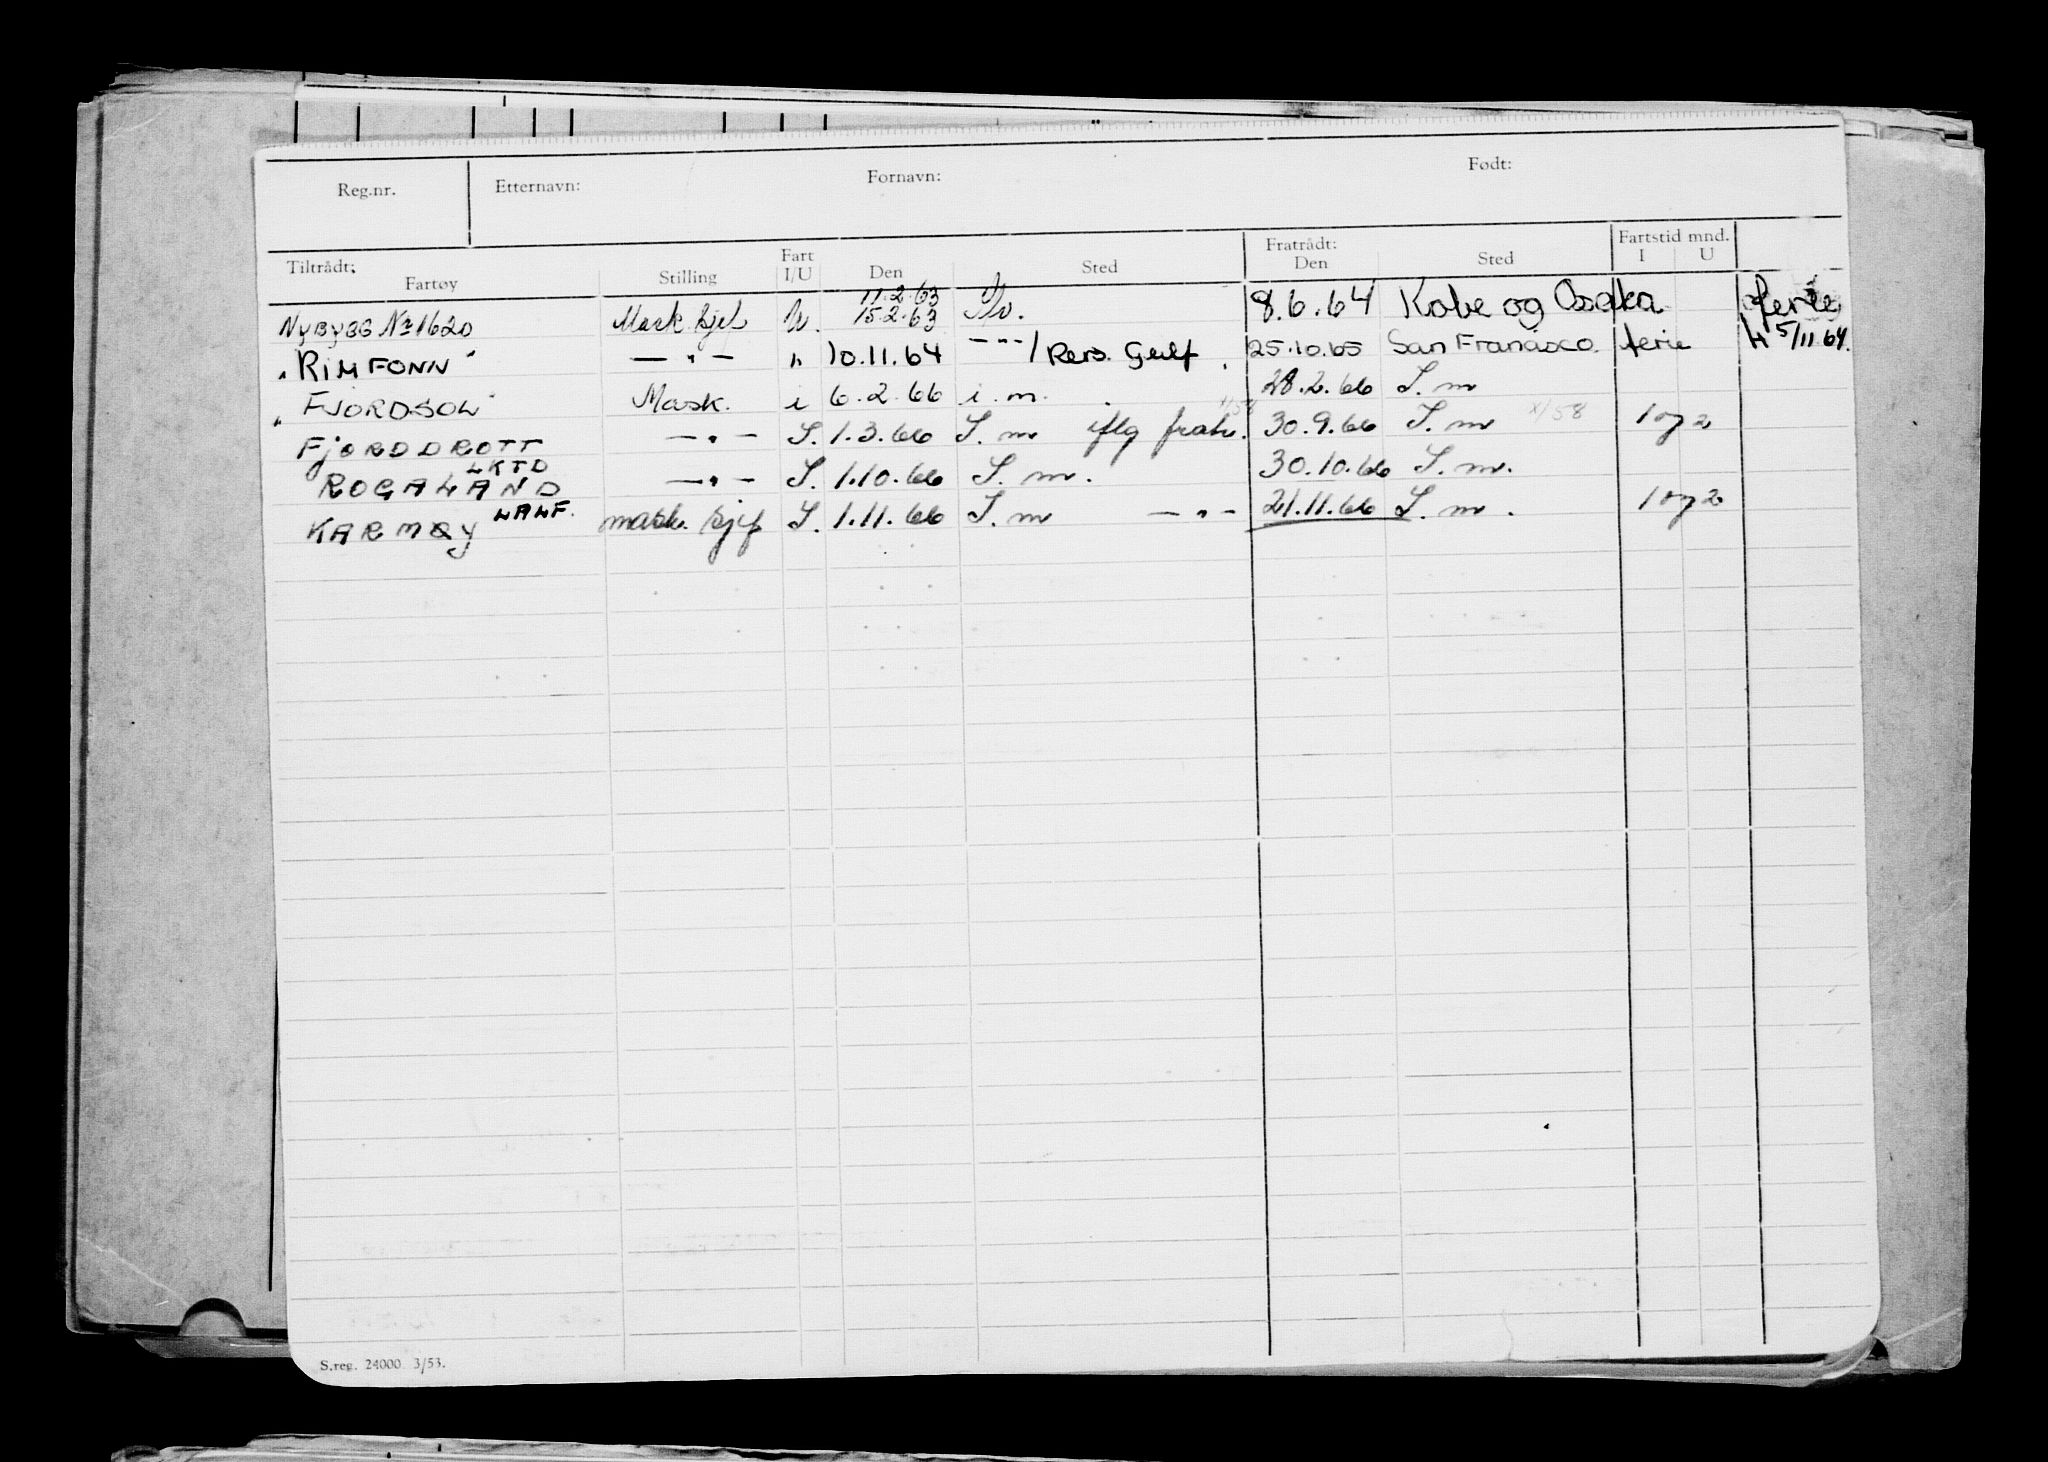 Reg.nr. Etternavn: Fornavn: Født:
Tiltrådt: Fratrådt: Fartstid mnd.
Fartøy Stilling Fart I/U Den Sted Den Sted I U
11.2.63
NYBYGG No 1620 Mask sjef U. 15.2.63 8.6.64 Kobe og Osaka ferie
" RIMFONN " — " — " 10.11.64 - " - / Pers. Gulf. 25.10.65 San Francisco. ferie h 5/11 64.
" FJORDSOL " Mask. i 6.2.66 i.m. 28.2.66 I. m
FJORDDROTT — " — I. 1.3.66 I. m iflg fratr. 30.9.66 I. m 1 og 2
LKTD
ROGALAND — " — I. 1.10.66 I. m. 30.10.66 I. m.
LALF.
KARMØY mask. sjef I. 1.11.66 I. m — " — 21.11.66 I. m. 1 og 2
S.reg. 24000 3/53.